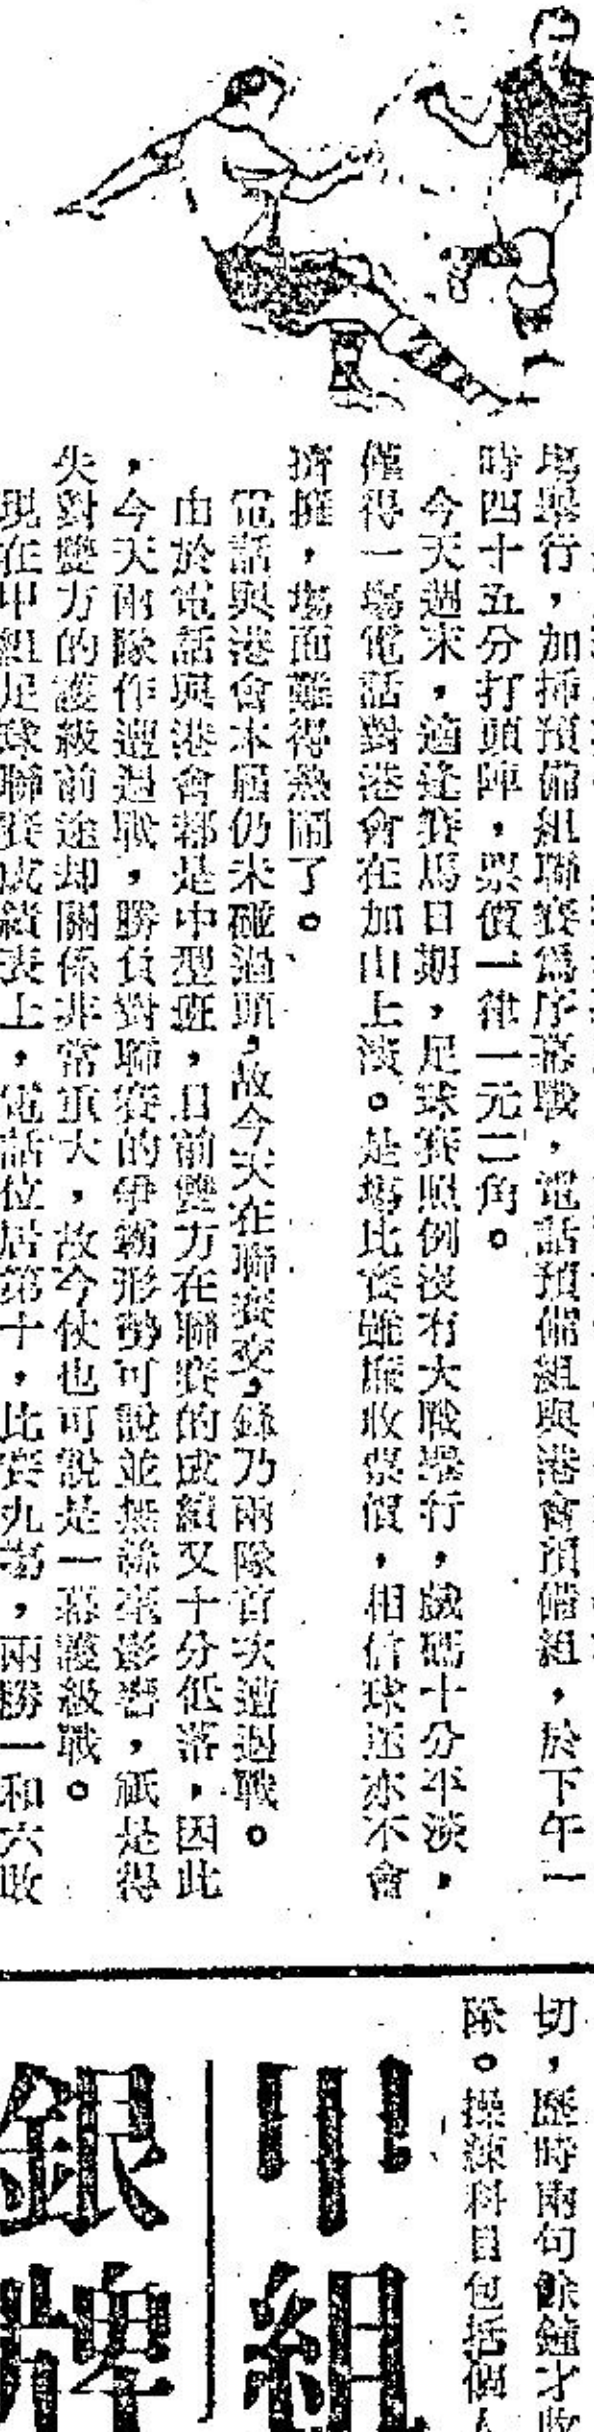 塲舉行，加揷預備組聯賽爲序幕戰，電話預備組與港會預備組，於下午一
時四十五分打頭陣，票價一律一元二角。
今天週末，適逢賽馬日期，足球賽照例沒有大戰舉行，戲碼十分平淡，
僅得一塲電話對港會在加山上演。是塲比賽雖廉收票價，相信球迷亦不會
擠擁，塲面難得熱鬧了。
電話與港會本屆仍未碰過頭，故今天在聯賽交，鋒乃兩隊首次遭遇戰。
由於電話與港會都是中型班，目前雙方在聯賽的成績又十分低落，因此
，今天兩隊作遭遇戰，勝負對聯賽的爭霸形勢可說並無絲毫影響，祇是得
失對雙方的護級前途却關係非常重大，故今仗也可說是一幕護級戰。
現在甲組足球聯賽成績表上，電話位居第十，比賽九塲，兩勝一和六敗
切，歷時兩句餘鐘才收
隊。操練科目包括個人
甲組
銀牌